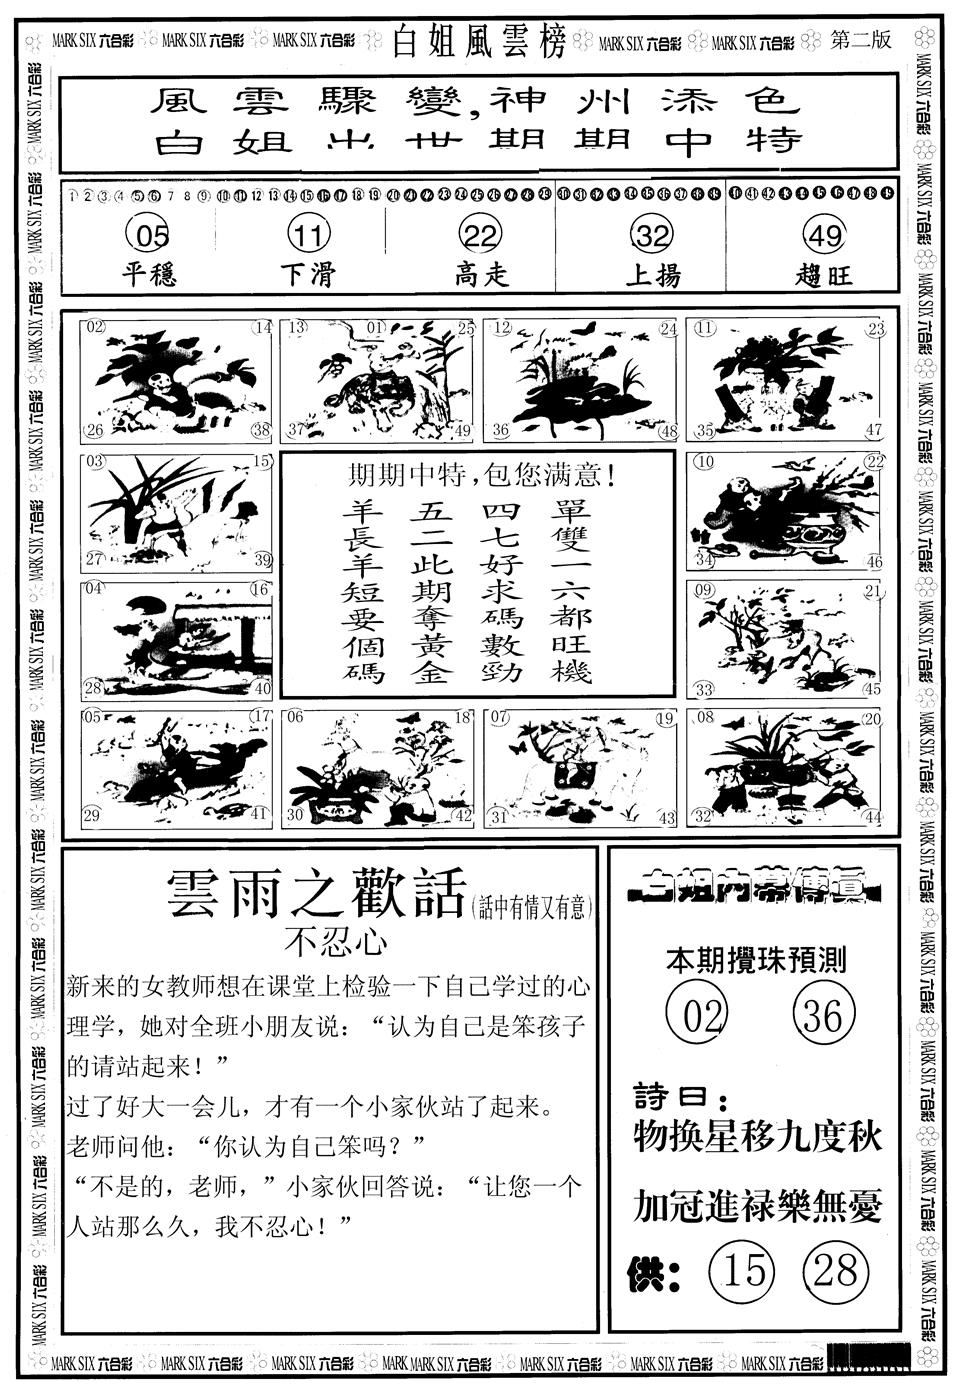 MARK SIX 六合彩 MARK SIX 六合彩 MARK SIX 六合彩 白姐風雲榜 MARK SIX 六合彩 MARK SIX 六合彩 第二版
風雲驟變,神州添色
白姐出世期期中特
1 2 3 4 5 6 7 8 9 10 11 12 13 14 15 16 17 18 19 20 21 22 23 24 25 26 27 28 29 30 31 32 33 34 35 36 37 38 39 40 41 42 43 44 45 46 47 48 49
05 11 22 32 49
平穩 下滑 高走 上揚 趨旺
02 14 13 01 25 12 24 11 23
26 38 37 49 36 48 35 47
03 15 10 22
27 39 34 46
04 16 09 21
28 40 33 45
05 17 06 18 07 19 08 20
29 41 30 42 31 43 32 44
期期中特,包您满意!
單雙一六都旺機
四七好求碼數勁
五二此期奪黃金
羊長羊短要個碼
雲雨之歡話(話中有情又有意)
不忍心
新来的女教师想在课堂上检验一下自己学过的心
理学，她对全班小朋友说：“认为自己是笨孩子
的请站起来！”
过了好大一会儿，才有一个小家伙站了起来。
老师问他：“你认为自己笨吗？”
“不是的，老师，”小家伙回答说：“让您一个
人站那么久，我不忍心！”
白姐內幕傳真
本期攪珠預測
02 36
詩曰：
物换星移九度秋
加冠進禄樂無憂
供： 15 28
MARK SIX 六合彩 MARK SIX 六合彩 MARK SIX 六合彩 MARK MARK SIX 六合彩 MARK SIX 六合彩 MARK SIX 六合彩 MARK SIX 六合彩